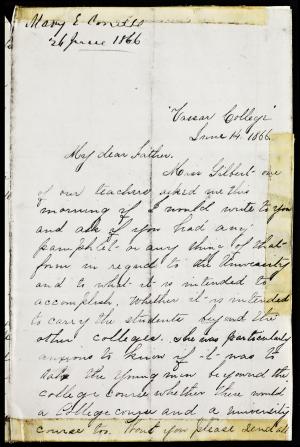 Mary E Cornell
26 June 1866
"Vassar College"
June 14. 1866.
My dear Father.
Miss Gilbert - one
of our teachers, asked me this
morning if I would write to you
and ask if you had any
pamphlet - or any thing of that
form in regard to the University
and to what it is intended to
accomplish, whether it is intended
to carry the students beyond the
other colleges. She was particularly
anxious to know if it was to
take the young men beyond the
college course whether there would
a College course and a University
course too. Wont you please send all